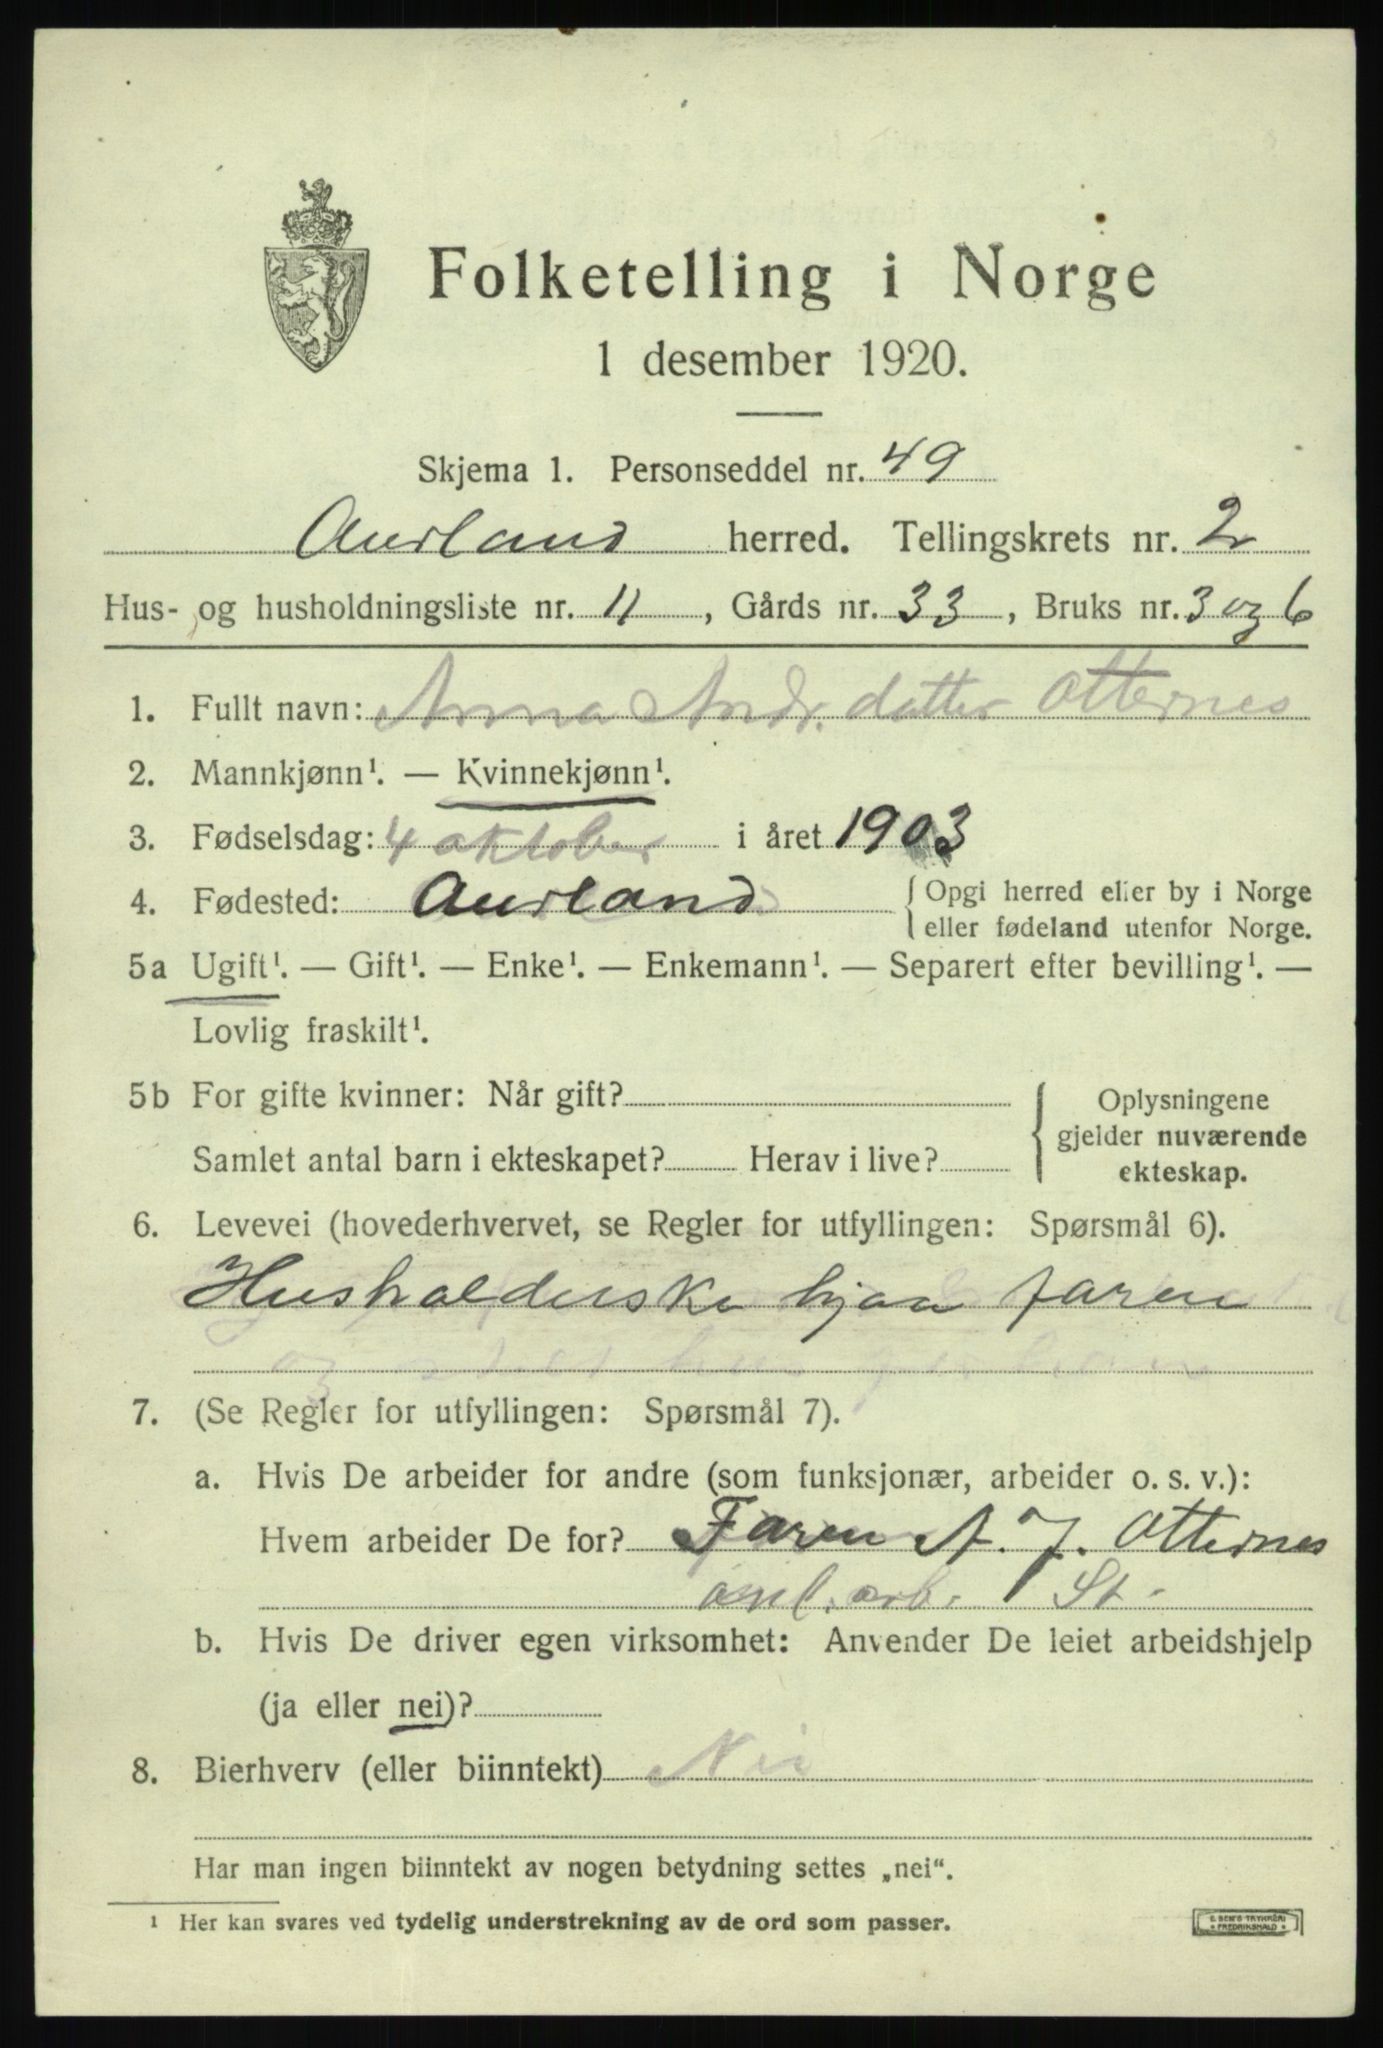 Folketelling i Norge
1 desember 1920.
Skjema 1. Personseddel nr. 49
Aurland herred. Tellingskrets nr. 2
Hus- og husholdningsliste nr. 11, Gårds nr. 33, Bruks nr. 3 og 6
1. Fullt navn: Anna Andr. datter Otternes
2. Mannkjønn¹. — Kvinnekjønn¹.
3. Fødselsdag: 4 oktober i året 1903
4. Fødested: Aurland { Opgi herred eller by i Norge
eller fødeland utenfor Norge.
5a Ugift¹. — Gift¹. — Enke¹. — Enkemann¹. — Separert efter bevilling¹. —
Lovlig fraskilt¹.
5b For gifte kvinner: Når gift?
Samlet antal barn i ekteskapet? Herav i live?
Oplysningene
gjelder nuværende
ekteskap.
6. Levevei (hovederhvervet, se Regler for utfyllingen: Spørsmål 6).
Husholderske hjaa faren
og
7. (Se Regler for utfyllingen: Spørsmål 7).
a. Hvis De arbeider for andre (som funksjonær, arbeider o. s. v.):
Hvem arbeider De for? Faren A. J. Otternes
arb. St.
b. Hvis De driver egen virksomhet: Anvender De leiet arbeidshjelp
(ja eller nei)?
8. Bierhverv (eller biinntekt) Nei
Har man ingen biinntekt av nogen betydning settes „nei“.
¹ Her kan svares ved tydelig understrekning av de ord som passer.
E. SEM'S TRYKKERI
FREDRIKSHALD